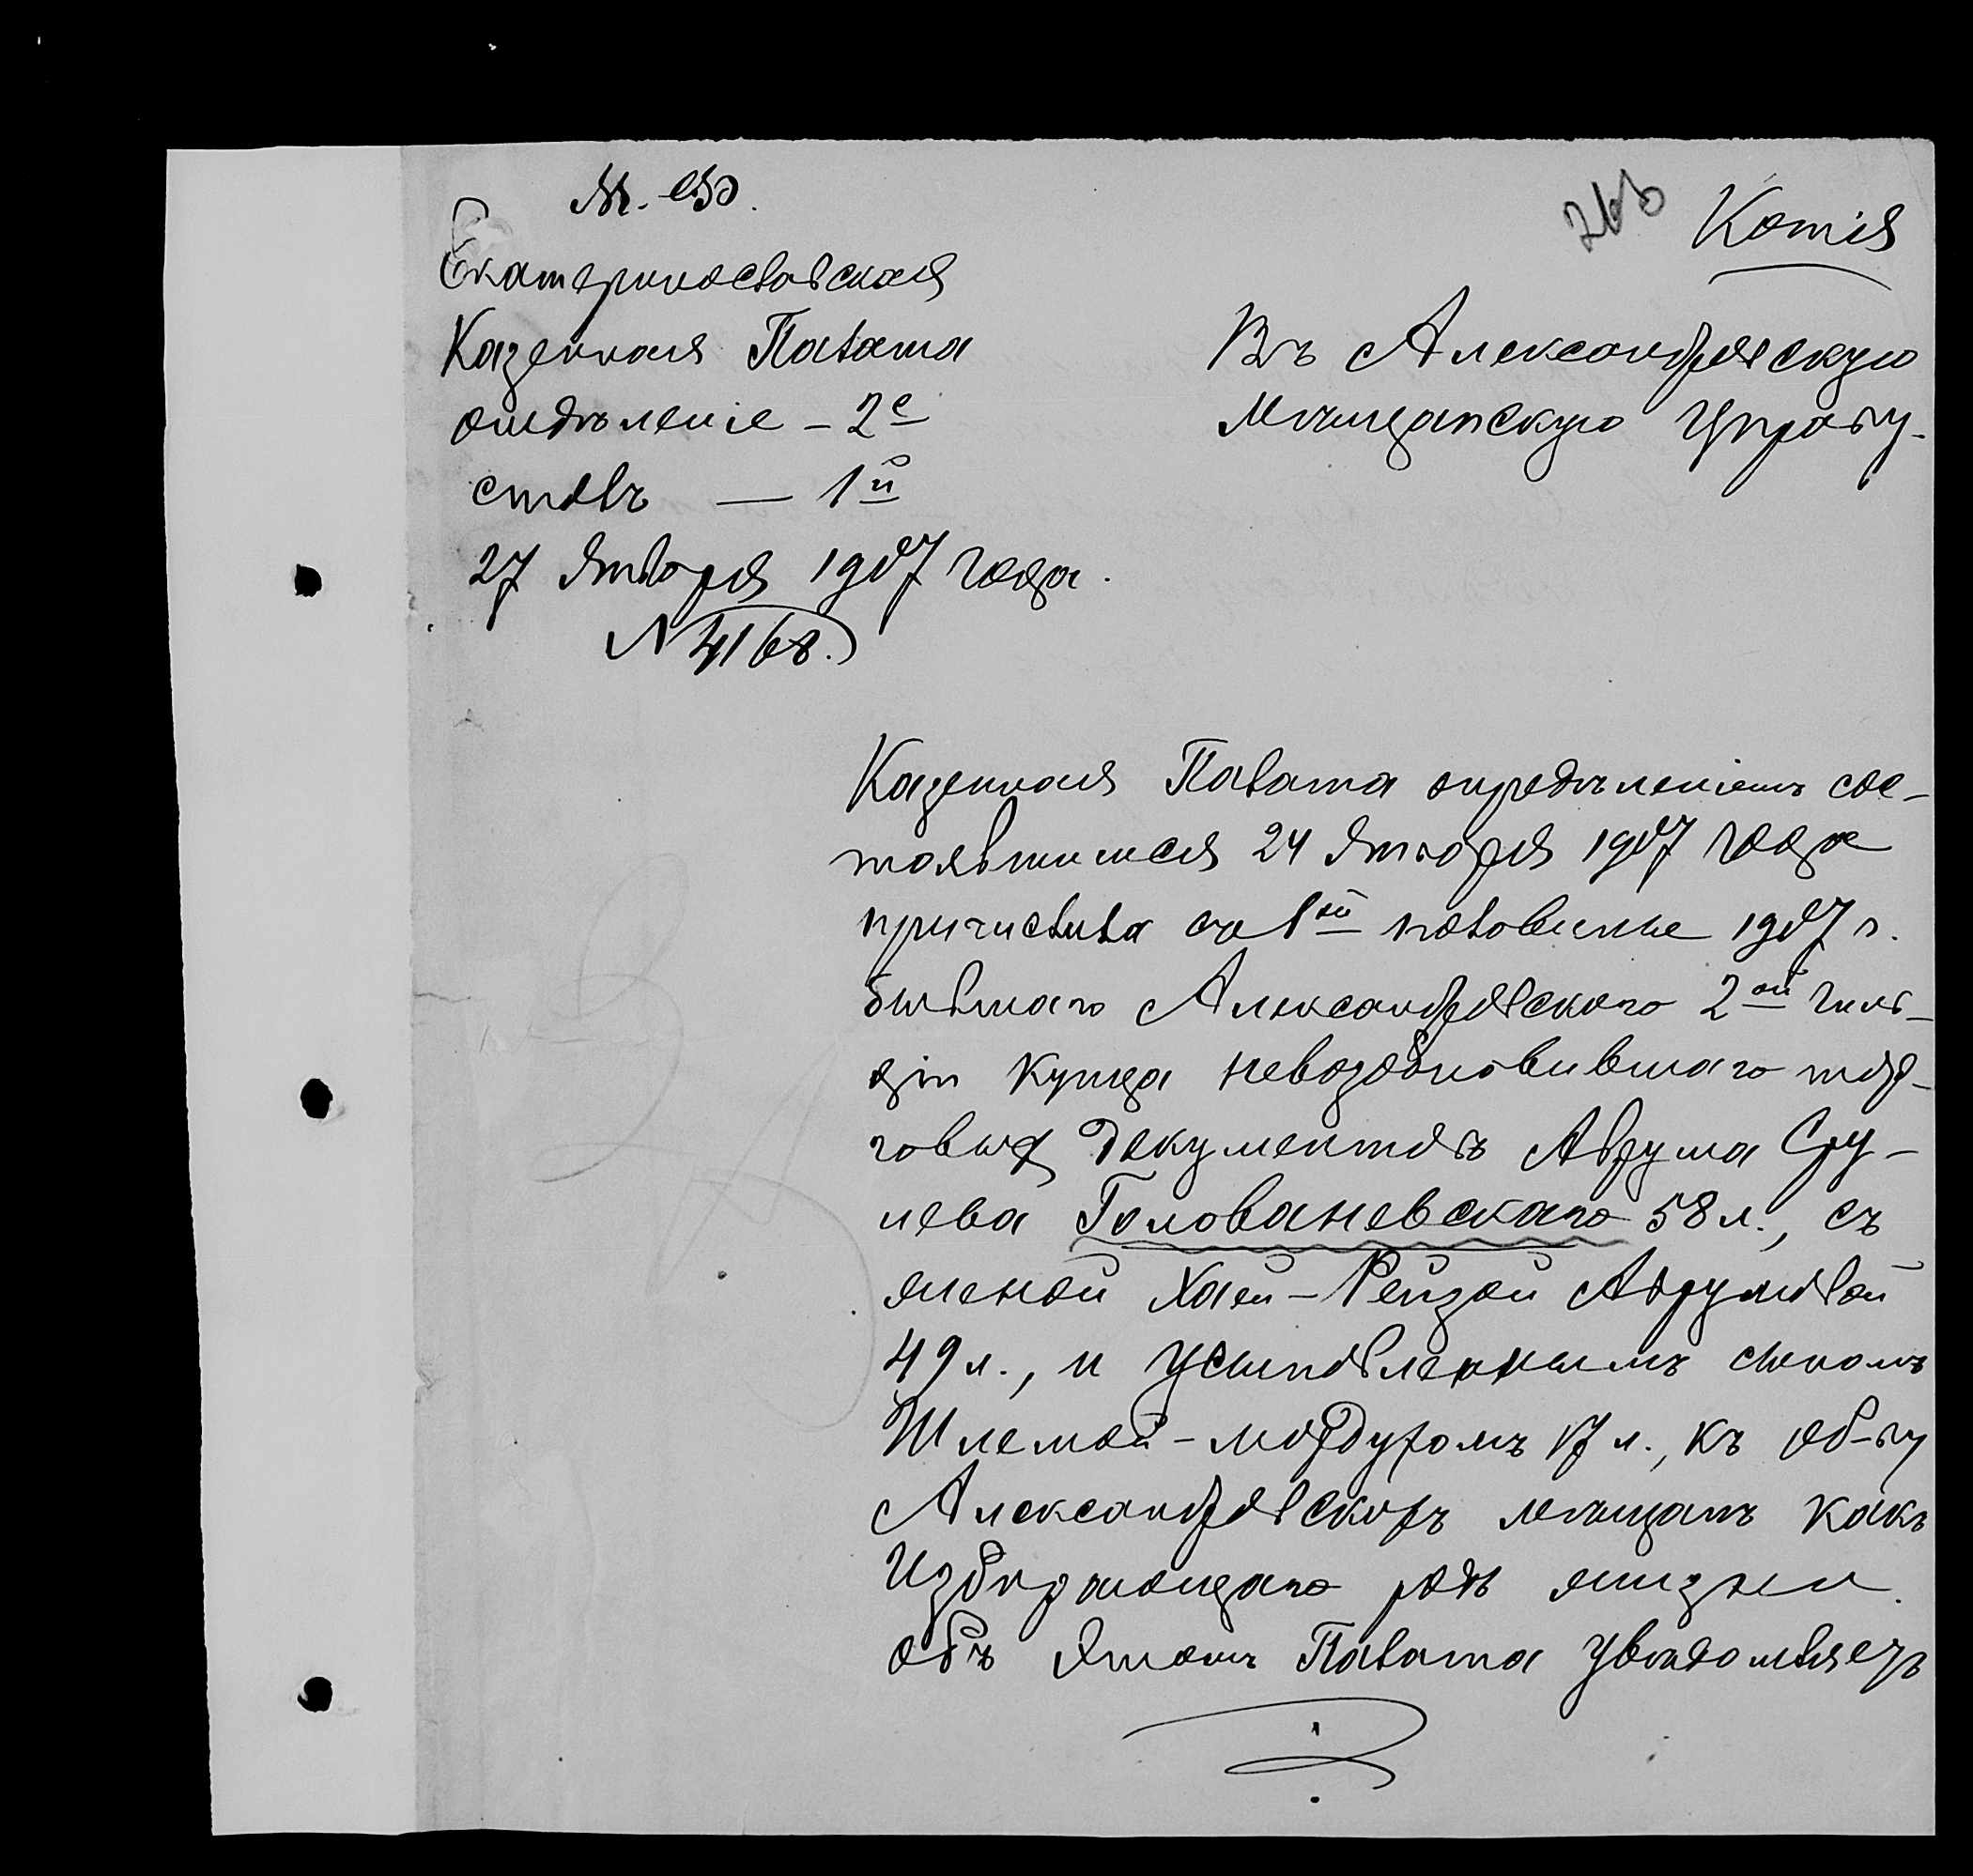 М. Ф.
Копія
Екатеринославская
Казенная Палата
отдѣленіе - 2е
столъ — 1й
27 Января 1907 года.
N 4168.
Въ Александровскую
Мѣщанскую Управу.
Казенная Палата опредѣленіемъ сос-
тоявшимся 24 Января 1907 года
причислила съ 1ой половины 1907 г.
бывшаго Александровскаго 2ой гиль-
діи купца невозобновившаго тор-
говыхъ документовъ Аврума Сру-
лева Голованевскаго 58 л., съ
женой Хаей-Рейзой Аврумовой
49 л., и усыновленнымъ сыномъ
Шлемой-Мордухомъ 17 л., къ об-ву
Александровскихъ мѣщанъ какъ
избирающаго родъ жизни.
Объ этомъ Палата увѣдомляетъ